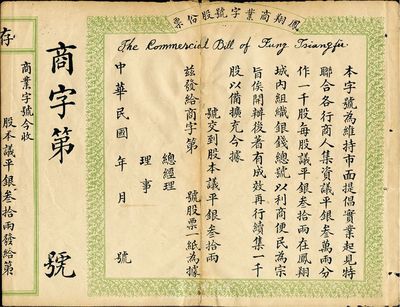 鳳翔商業字號股份票
The Commercial Bill of Fung Tsiangfu
本字號為維持市面提倡實業起見特
聯合各行商人集資議平銀叁萬兩分
作一千股每股議平銀叁拾兩在鳳翔
城內組織銀錢總號以利商便民為宗
旨俟開辦後著有成效再行續集一千
股以備擴充今據
號交到股本議平銀叁拾兩
茲發給商字第　號股票一紙為據
總經理
理事
中華民國　年　月　號
商字第　號
商業字號今收
股本議平銀叁拾兩發給第
存